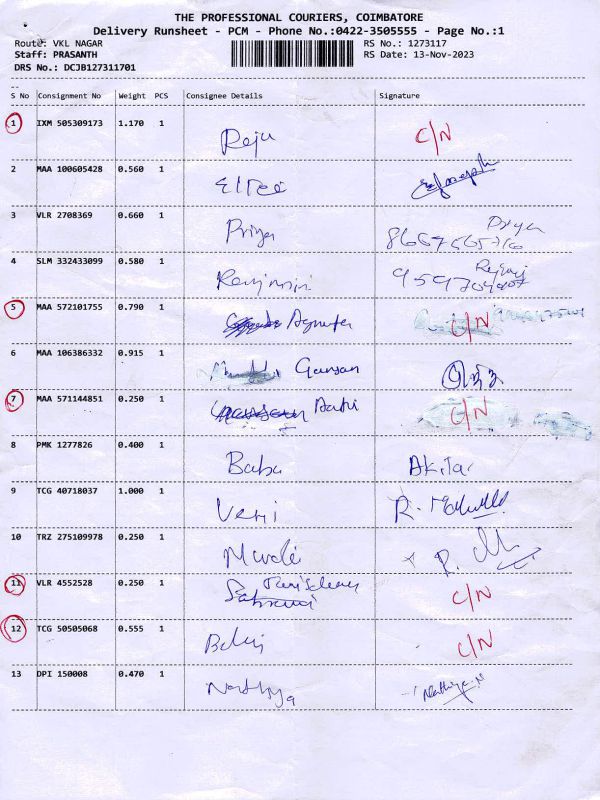 THE PROFESSIONAL COURIERS, COIMBATORE
Delivery Runsheet - PCM - Phone No.:0422-3505555 - Page No.:1
Route: VKL NAGAR RS No.: 1273117
Staff: PRASANTH RS Date: 13-Nov-2023
DRS No.: DCJB127311701
S No Consignment No Weight PCS Consignee Details Signature
1 IXM 505309173 1.170 1 Reju C/N
2 MAA 100605428 0.560 1
3 VLR 2708369 0.660 1 Priya Priya
4 SLM 332433099 0.580 1
5 MAA 572101755 0.790 1 C/N
6 MAA 106386332 0.915 1 Gansan
7 MAA 571144851 0.250 1 C/N
8 PMK 1277826 0.400 1 Babu Akila
9 TCG 40718037 1.000 1 Veni R.
10 TRZ 275109978 0.250 1
11 VLR 4552528 0.250 1 C/N
12 TCG 50505068 0.555 1 C/N
13 DPI 150008 0.470 1 Nathiya Nathiya.N